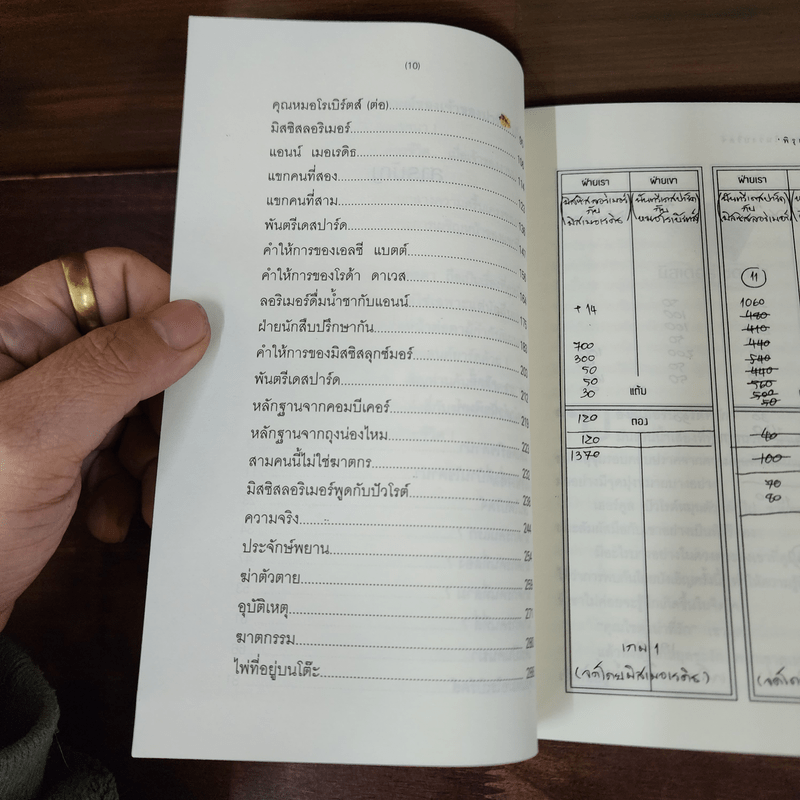 (10)
คุณหมอโรเบิร์ตส์ (ต่อ)
มิสซิสลอริเมอร์
แอนน์ เมอเรดิธ
แขกคนที่สอง 114
แขกคนที่สาม
พันตรีเดสปาร์ด
คำให้การของเอลซี แบตต์ 141
คำให้การของโรด้า ดาเวส
ลอริเมอร์ดื่มน้ำชากับแอนน์
ฝ่ายนักสืบปรึกษากัน
คำให้การของมิสซิสลุกซ์มอร์
พันตรีเดสปาร์ด
หลักฐานจากคอมบีเคอร์
หลักฐานจากถุงน่องไหม 223
สามคนนี้ไม่ใช่ฆาตกร 232
มิสซิสลอริเมอร์พูดกับปัวโรต์
ความจริง 244
ประจักษ์พยาน 254
ฆ่าตัวตาย
อุบัติเหตุ 271
ฆาตกรรม
ไพ่ที่อยู่บนโต๊ะ
ฝ่ายเรา ฝ่ายเขา
มิสซิสลอริเมอร์
กับ
มิสเมอเรดิธ
พันตรีเดสปาร์ด
กับ
หมอโรเบิร์ตส์
+ 14
700
300
50
50
30
แต้ม
120
กอง
120
1370
เกม 1
(จดโดยมิสเมอเรดิธ)
ฝ่ายเรา
พันตรีเดสปาร์ด
กับ
มิสซิสลอริเมอร์
11
1060
480
410
440
540
440
560
500
50
40
100
70
80